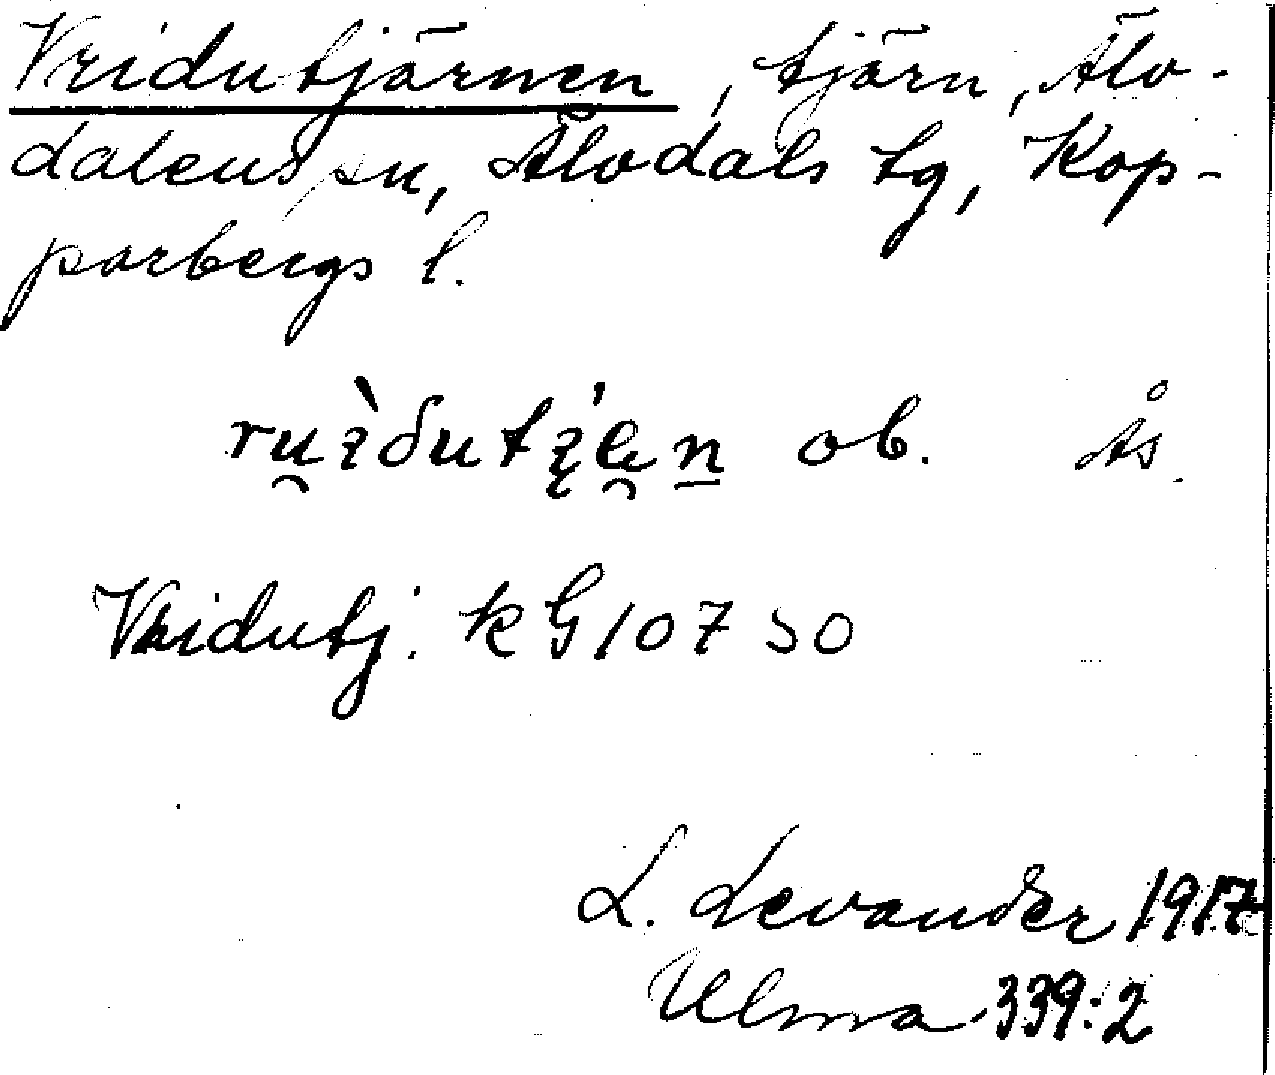 Vridutjärnen, tjärn, Älv-
dalens sn, Älvdals tg, Kop-
parbergs l.
ob. Ås.
Vridutj. k G 10750
L. Levander 1917
Ulma 339:2